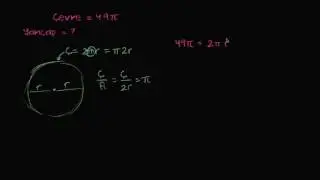 Çevre = 49π
Yarıçap = ?
Ç = 2πr = π2r
r r
Ç/R = Ç/2r = π
49π = 2πr